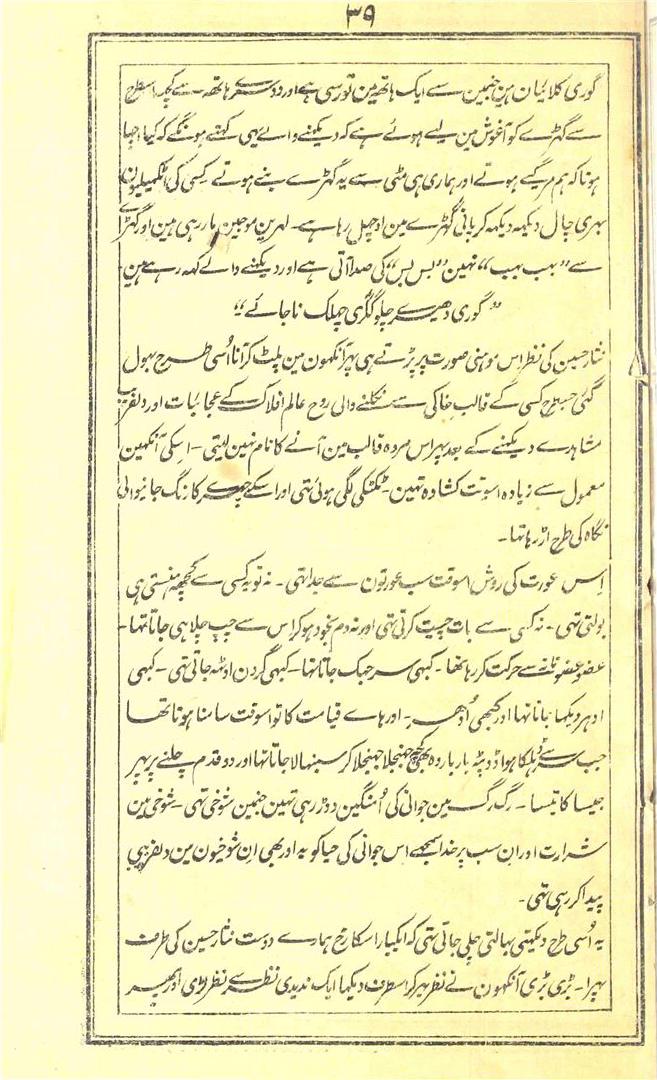 ۳۹
گوری کلائیان ہین جنمین سے ایک ہاتھ مین تورسی ہے اور دوسرے ہاتھ سے کچھ اسطرح
سے گہڑے کو آغوش مین لیے ہوئے ہے کہ دیکہنے والے یہی کہتے ہونگے کہ کیا اچہا
ہوتا کہ ہم مر گیے ہوتے اور ہماری ہی مٹی سے یہ گہڑے بنے ہوتے کسی کی اٹکھیلیون
بہری چال دیکہہ دیکہہ کر پانی گہڑے مین اوچھل رہا ہے۔ لہرین موجین مار رہی ہین اور گہڑے
سے "بہب بہب" نہین "بس بس" کی صدا آتی ہے اور دیکہنے والے کہہ رہے ہین
"گوری دھیرے چلو گگری چہلک نا جائے"
نثار حسین کی نظر اس موہنی صورت پر پڑتے ہی پہر آنکھون مین پلٹ کر آنا اُسی طرح بہول
گئی جسطرح کسی کے قالب خاکی سے نکلنے والی روح عالم افلاک کے عجائبات اور دلفریب
مشاہدے دیکہنے کے بعد پہر اس مردہ قالب مین آنے کا نام نہین لیتی۔ اسکی آنکہین
معمول سے زیادہ اسوقت کشادہ تہین۔ ٹکٹکی لگی ہوئی تہی اور اسکے چہرے کا رنگ جانیوالی
نگاہ کی طرح اڑ رہا تہا۔
اِس عورت کی روش اسوقت سب عورتون سے جدا تہی۔ نہ تو یہ کسی سے کچھ ہنستی ہی
بولتی تہی۔ نہ کسی سے بات چیت کرتی تہی اور نہ دم بخود ہو کر اس سے چپ چلا ہی جاتا تہا۔
عضو عضو سے حرکت کر رہا تھا۔ کبہی سر جہک جاتا تہا۔ کبہی گردن اوٹہہ جاتی تہی۔ کبہی
ادہر دیکہا جاتا تہا اور کبھی اُدھر۔ اور ہاے قیامت کا تو اسوقت سامنا ہوتا تھا
جب سر سے ڈہلکا ہوا ڈوپٹہ بار بار وہ بھی کچھ جہنجلا جہنجلا کر سنبہالا جاتا تہا اور دو قدم چلنے پر پہر
جیسا کا تیسا۔ رگ رگ مین جوانی کی اُمنگین دوڑ رہی تہین جنمین شوخی تہی۔ شوخی مین
شرارت اور ان سب پر خدا سمجھے اس جوانی کی حیا کو یہ اور بھی اِن شوخیون مین دلفریبی
پیدا کر رہی تہی۔
یہ اُسی طرح دیکہتی بہالتی چلی جاتی تہی کہ ایکبار اسکا رخ ہمارے دوست نثار حسین کی طرف
پہرا۔ بڑی بڑی آنکھون نے نظر بہر کر اسطرف دیکہا ایک ندیدی نظر سے نظر لڑی اور پہر